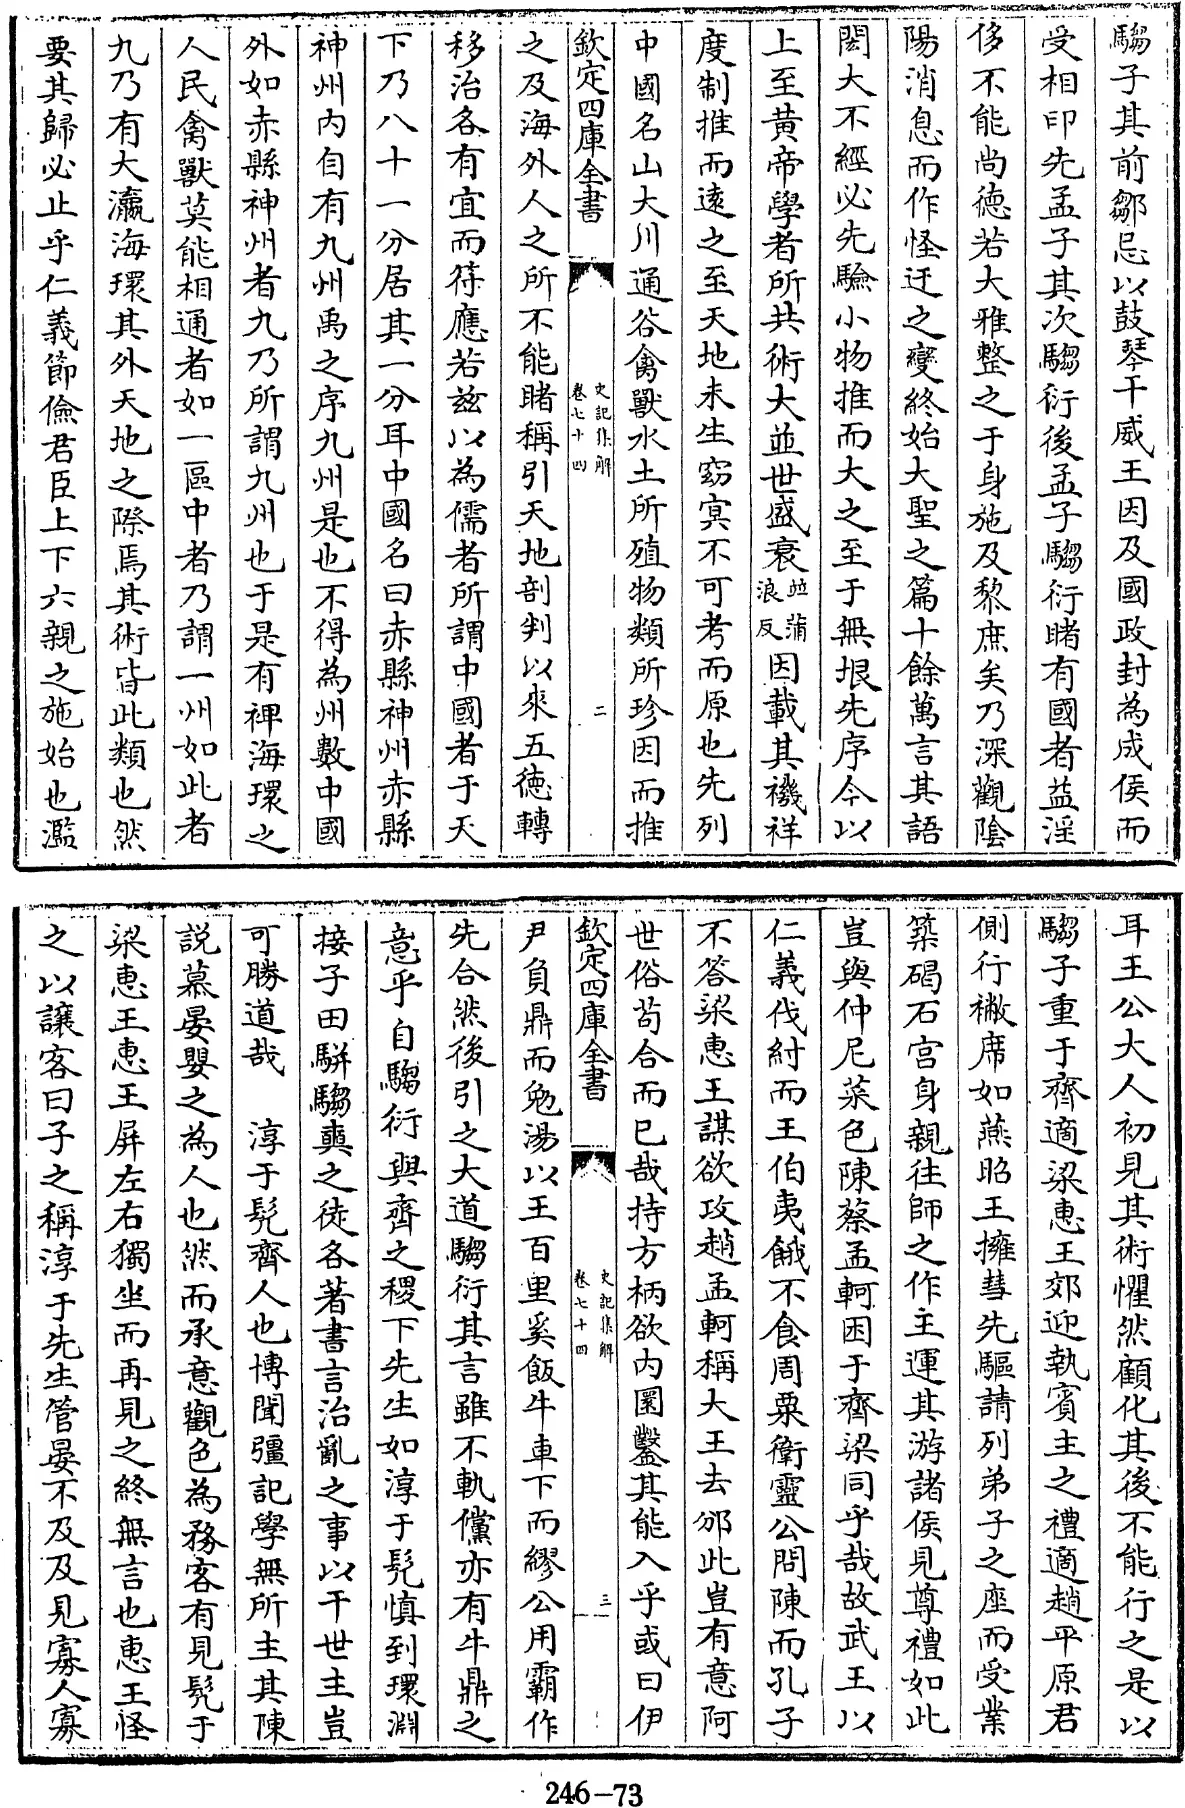 騶子其前鄒忌以鼓琴干威王因及國政封為成侯而
受相印先孟子其次騶衍後孟子騶衍睹有國者益淫
侈不能尚德若大雅整之于身施及黎庶矣乃深觀陰
陽消息而作怪迂之變終始大聖之篇十餘萬言其語
閎大不經必先驗小物推而大之至于無垠先序今以
上至黃帝學者所共術大並世盛衰並蒲浪反因載其禨祥
度制推而遠之至天地未生窈冥不可考而原也先列
中國名山大川通谷禽獸水土所殖物類所珍因而推
欽定四庫全書
史記集解
卷七十四
二
之及海外人之所不能睹稱引天地剖判以來五德轉
移治各有宜而符應若兹以為儒者所謂中國者于天
下乃八十一分居其一分耳中國名曰赤縣神州赤縣
神州內自有九州禹之序九州是也不得為州數中國
外如赤縣神州者九乃所謂九州也于是有裨海環之
人民禽獸莫能相通者如一區中者乃謂一州如此者
九乃有大瀛海環其外天地之際焉其術皆此類也然
要其歸必止乎仁義節儉君臣上下六親之施始也濫
耳王公大人初見其術懼然顧化其後不能行之是以
騶子重于齊適梁惠王郊迎執賓主之禮適趙平原君
側行襒席如燕昭王擁彗先驅請列弟子之座而受業
築碣石宫身親往師之作主運其游諸侯見尊禮如此
豈與仲尼菜色陳蔡孟軻困于齊梁同乎哉故武王以
仁義伐紂而王伯夷餓不食周粟衛靈公問陳而孔子
不答梁惠王謀欲攻趙孟軻稱大王去邠此豈有意阿
世俗苟合而已哉持方柄欲内圜鑿其能入乎或曰伊
欽定四庫全書
史記集解
卷七十四
三
尹負鼎而勉湯以王百里奚飯牛車下而繆公用霸作
先合然後引之大道騶衍其言雖不軌儻亦有牛鼎之
意乎自騶衍與齊之稷下先生如淳于髡慎到環淵
接子田駢騶奭之徒各著書言治亂之事以干世主豈
可勝道哉　淳于髡齊人也博聞彊記學無所主其陳
説慕晏嬰之為人也然而承意觀色為務客有見髡于
梁惠王惠王屏左右獨坐而再見之終無言也惠王怪
之以讓客曰子之稱淳于先生管晏不及及見寡人寡
246-73